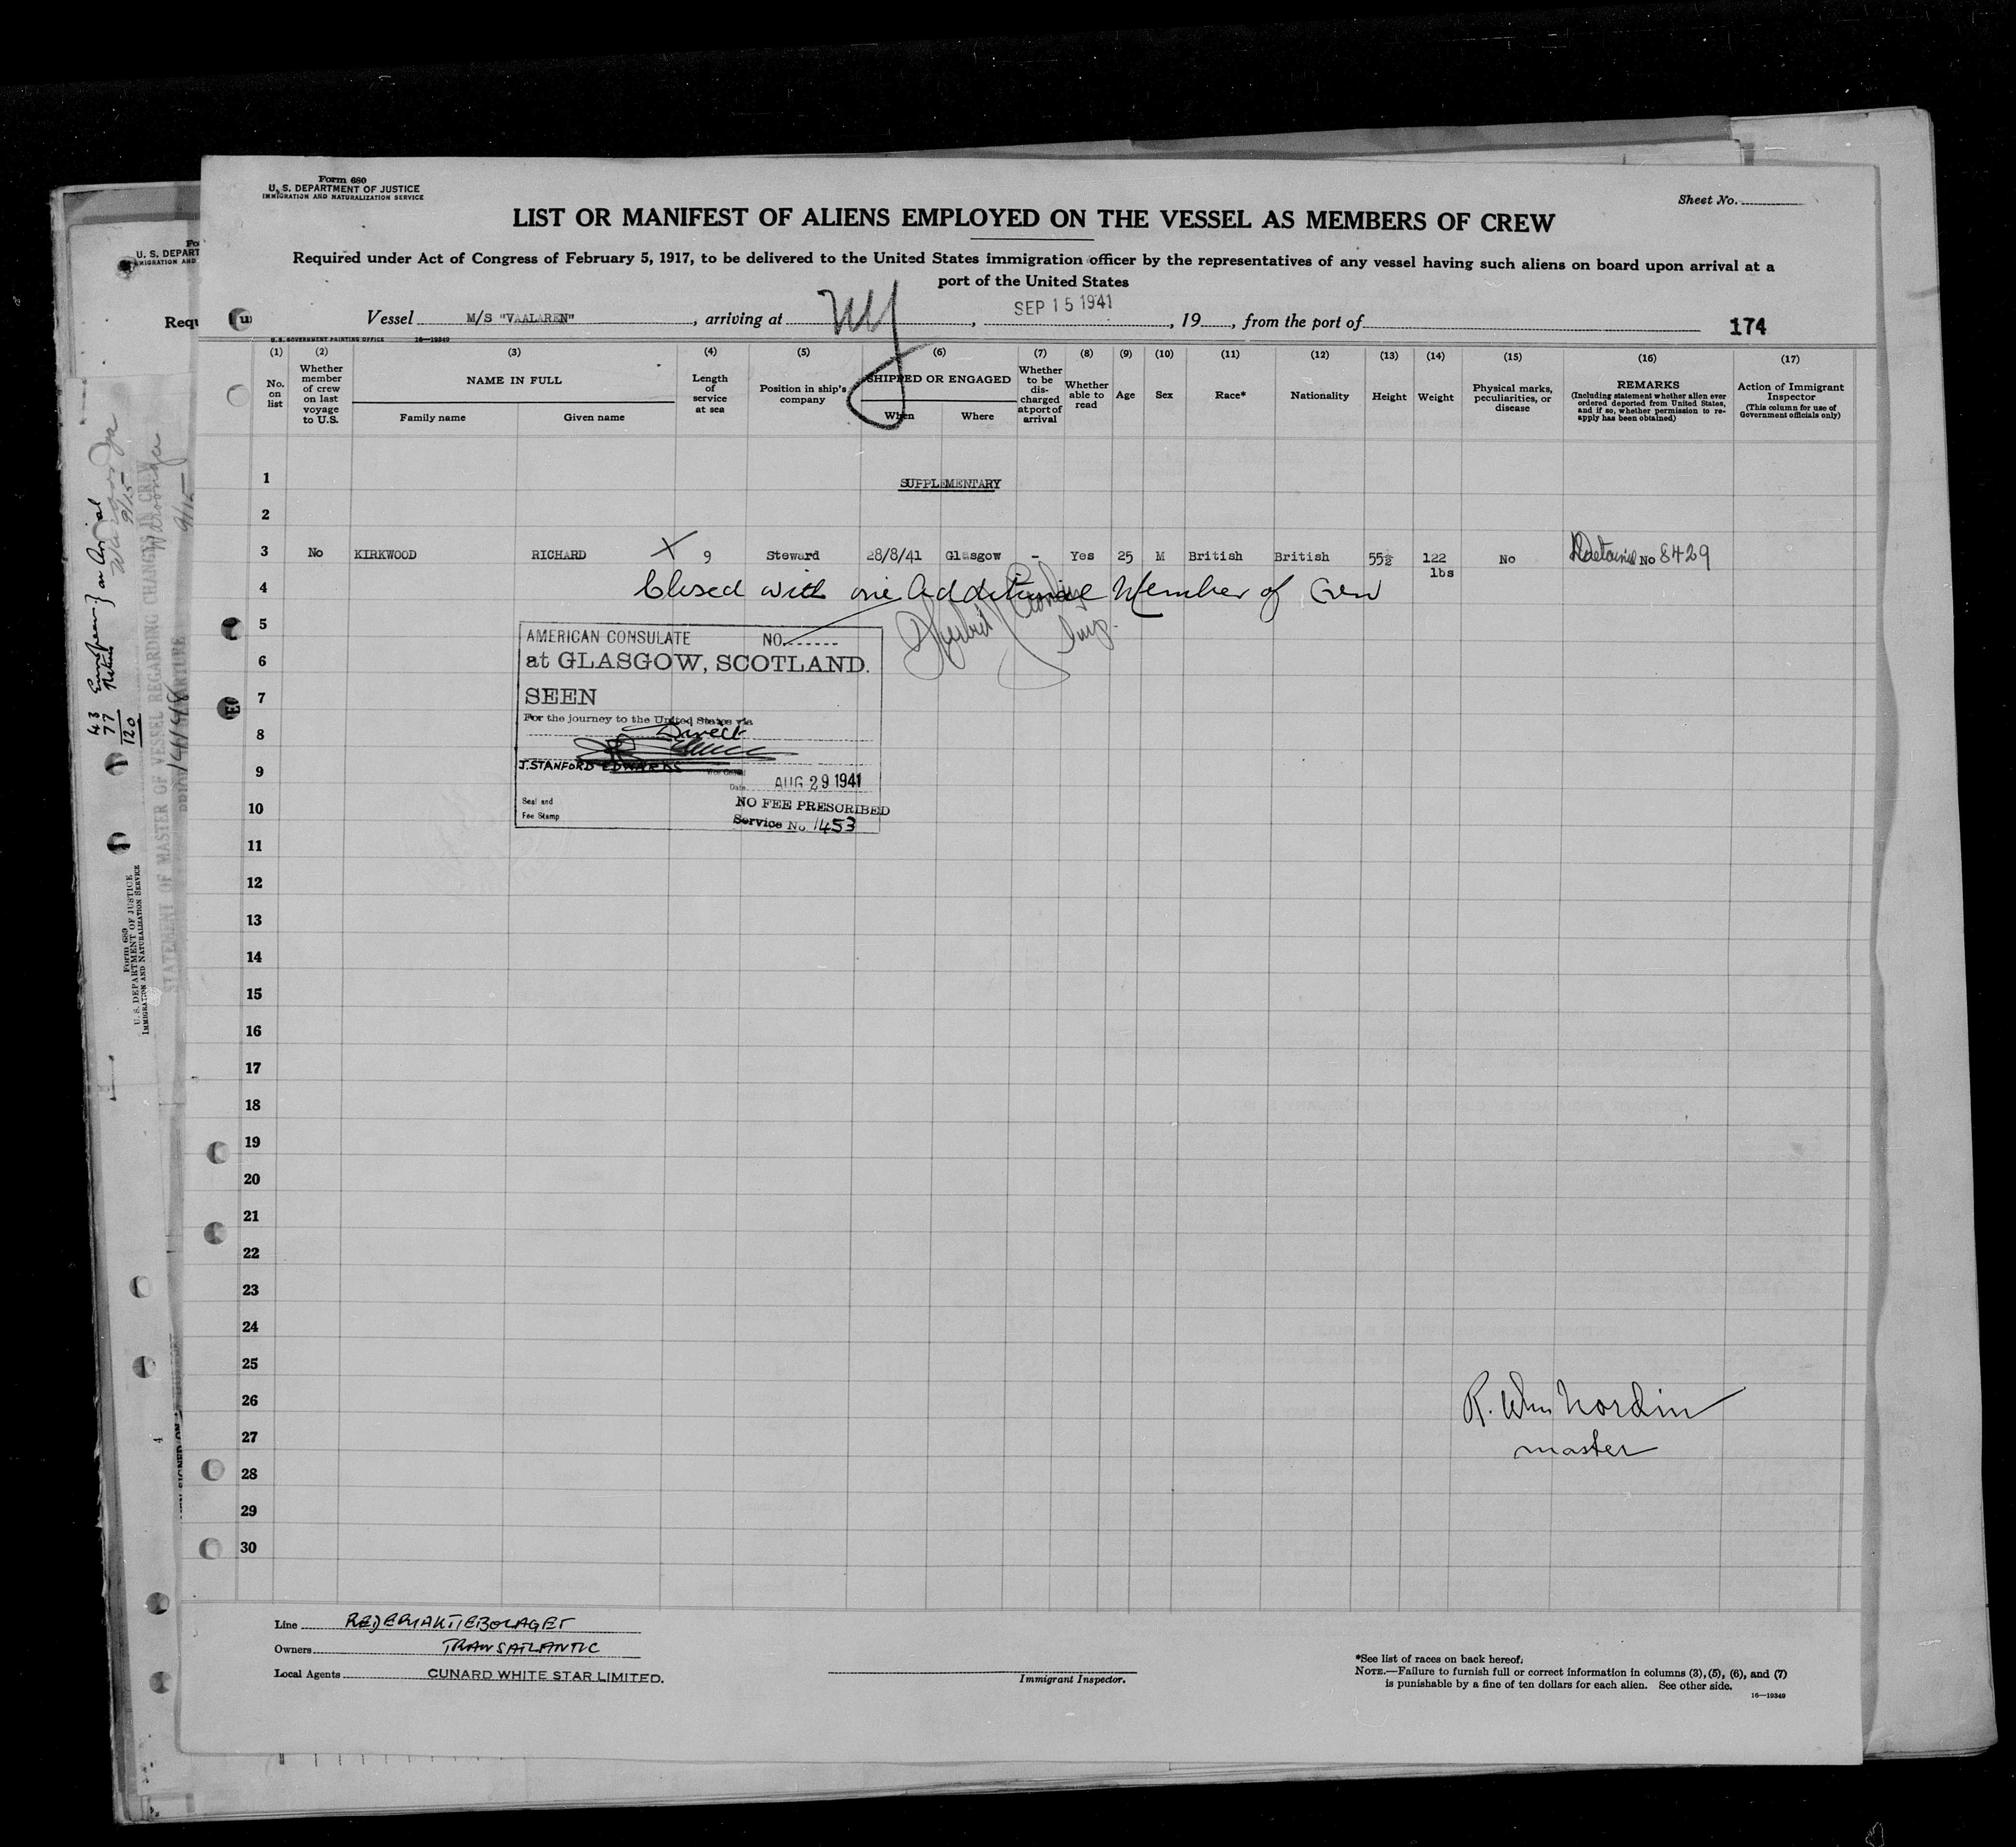 Form 680
U. S. DEPARTMENT OF JUSTICE
IMMIGRATION AND NATURALIZATION SERVICE
Sheet No.
LIST OR MANIFEST OF ALIENS EMPLOYED ON THE VESSEL AS MEMBERS OF CREW
Required under Act of Congress of February 5, 1917, to be delivered to the United States immigration officer by the representatives of any vessel having such aliens on board upon arrival at a
port of the United States
Vessel M/S "VAALAREN", arriving at NY, SEP 15 1941, 19, from the port of
174
U.S. GOVERNMENT PRINTING OFFICE 16—19349
(1) (2) (3) (4) (5) (6) (7) (8) (9) (10) (11) (12) (13) (14) (15) (16) (17)
No. on list
Whether member of crew on last voyage to U.S.
NAME IN FULL
Family name
Given name
Length of service at sea
Position in ship's company
SHIPPED OR ENGAGED
When
Where
Whether to be discharged at port of arrival
Whether able to read
Age
Sex
Race*
Nationality
Height
Weight
Physical marks, peculiarities, or disease
REMARKS
(Including statement whether alien ever ordered deported from United States, and if so, whether permission to reapply has been obtained)
Action of Immigrant Inspector
(This column for use of Government officials only)
1 SUPPLEMENTARY
2
3 No KIRKWOOD RICHARD X 9 Steward 28/8/41 Glasgow - Yes 25 M British British 55½ 122 lbs No No 8429
4 Closed with one Additional Member of Crew
5
6
7
8
9
10
11
12
13
14
15
16
17
18
19
20
21
22
23
24
25
26
27
28
29
30
AMERICAN CONSULATE NO.
at GLASGOW, SCOTLAND.
SEEN
For the journey to the United States via
Direct
J. STANFORD EDWARDS
Vice Consul
Date AUG 29 1941
Seal and
Fee Stamp
NO FEE PRESCRIBED
Service No 1453
R. Wm Nordin
master
Line REDERIAKTIEBOLAGET
Owners TRANSATLANTIC
Local Agents CUNARD WHITE STAR LIMITED.
Immigrant Inspector.
*See list of races on back hereof.
NOTE.—Failure to furnish full or correct information in columns (3), (5), (6), and (7)
is punishable by a fine of ten dollars for each alien. See other side.
16—19349
U. S. DEPART
Requ
43 European
77
120
on Arrival
9/15
STATEMENT OF MASTER OF VESSEL REGARDING CHANGES IN CREW
Form 689
U. S. DEPARTMENT OF JUSTICE
IMMIGRATION AND NATURALIZATION SERVICE
4